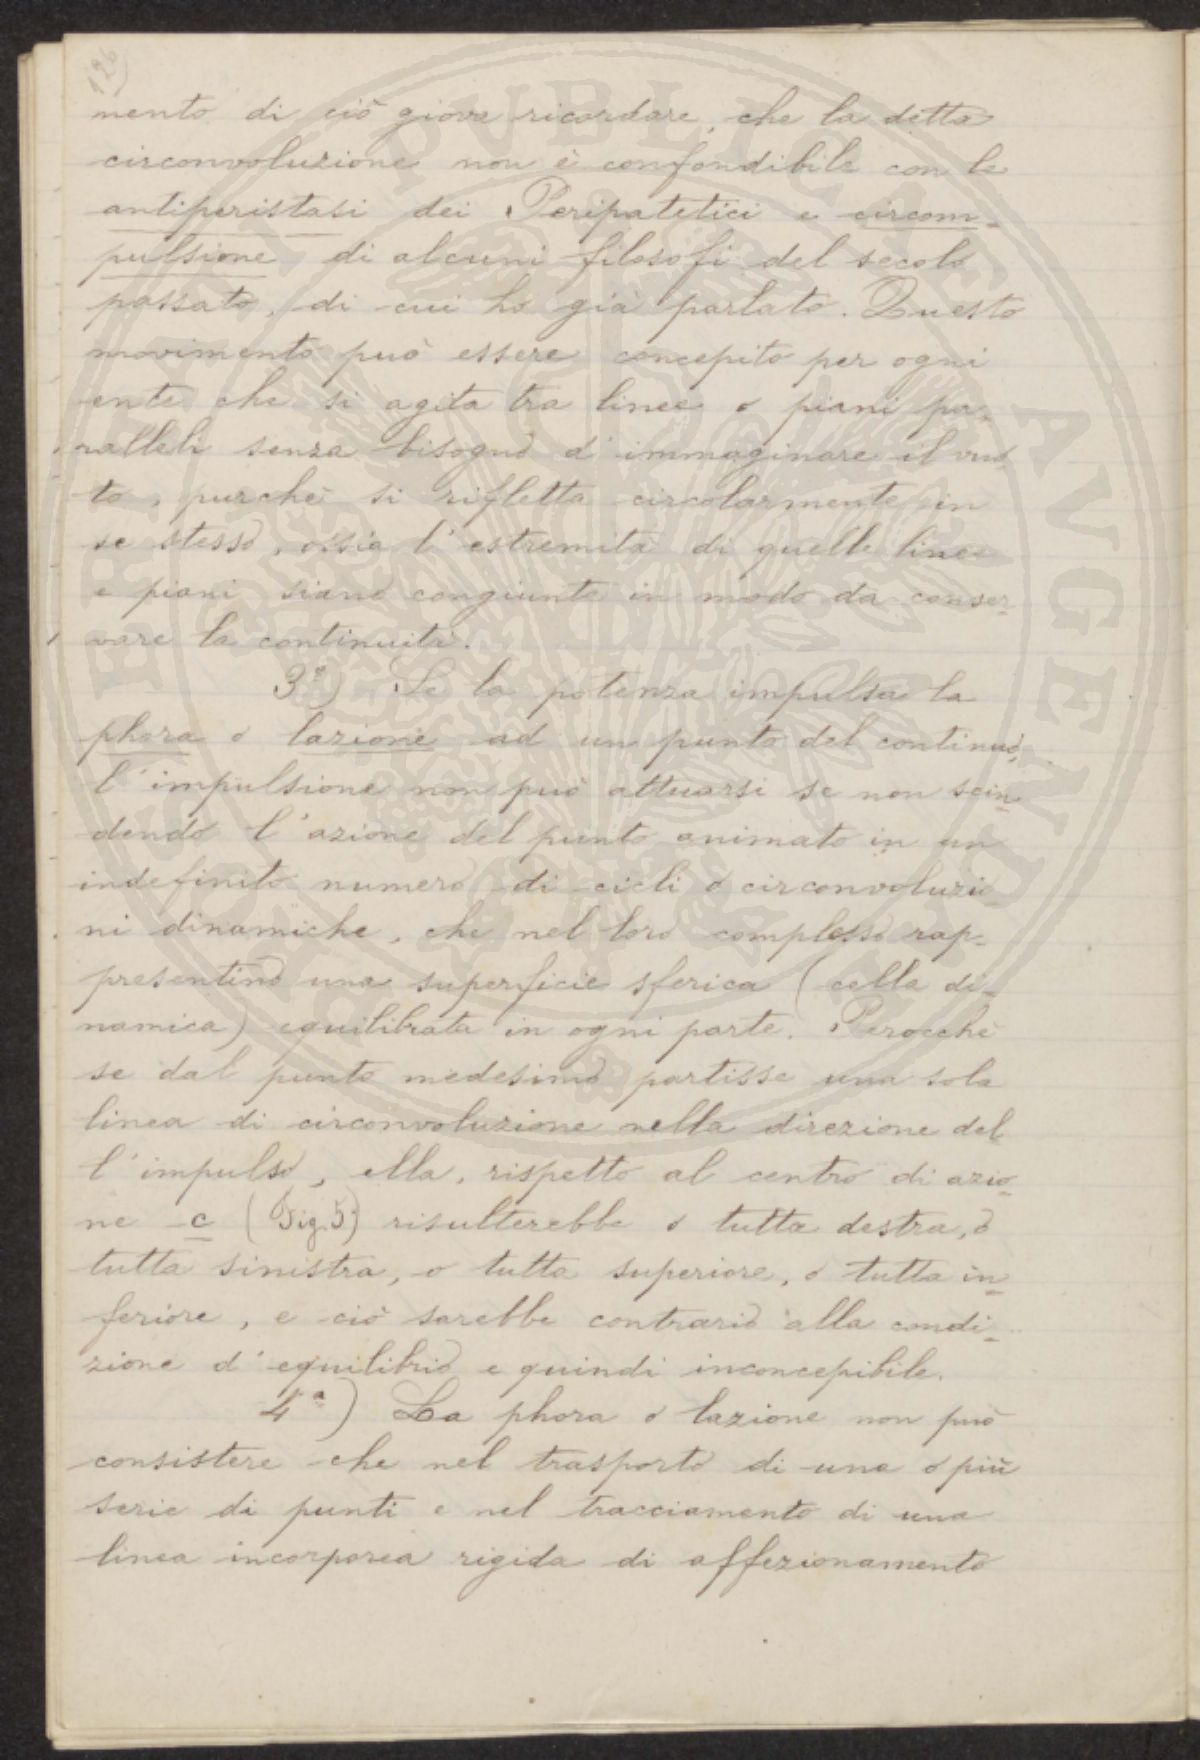 126)
mento di ciò giova ricordare, che la detta
circonvoluzione non è confondibile con le
antiperistasi dei Peripatetici e circom-
pulsione di alcuni filosofi del secolo
passato, di cui ho già parlato. Questo
movimento può essere concepito per ogni
ente che si agita tra linee o piani pa-
ralleli senza bisogno d'immaginare il vuo-
to, purchè si rifletta circolarmente in
se stesso, ossia l'estremità di quelle linee
e piani siano congiunte in modo da conser-
vare la continuità.
3ª) Se la potenza impulsa la
phora o lazione ad un punto del continuo,
l'impulsione non può attuarsi se non scin-
dendo l'azione del punto animato in un
indefinito numero di cicli o circonvoluzio-
ni dinamiche, che nel loro complesso rap-
presentino una superficie sferica (cella di-
namica) equilibrata in ogni parte. Perocchè
se dal punto medesimo partisse una sola
linea di circonvoluzione nella direzione del-
l'impulso, ella, rispetto al centro di azio-
ne c (Fig. 5) risulterebbe o tutta destra, o
tutta sinistra, o tutta superiore, o tutta in-
feriore, e ciò sarebbe contrario alla condi-
zione d'equilibrio e quindi inconcepibile.
4ª) La phora o lazione non può
consistere che nel trasporto di una o più
serie di punti e nel tracciamento di una
linea incorporea rigida di affezionamento